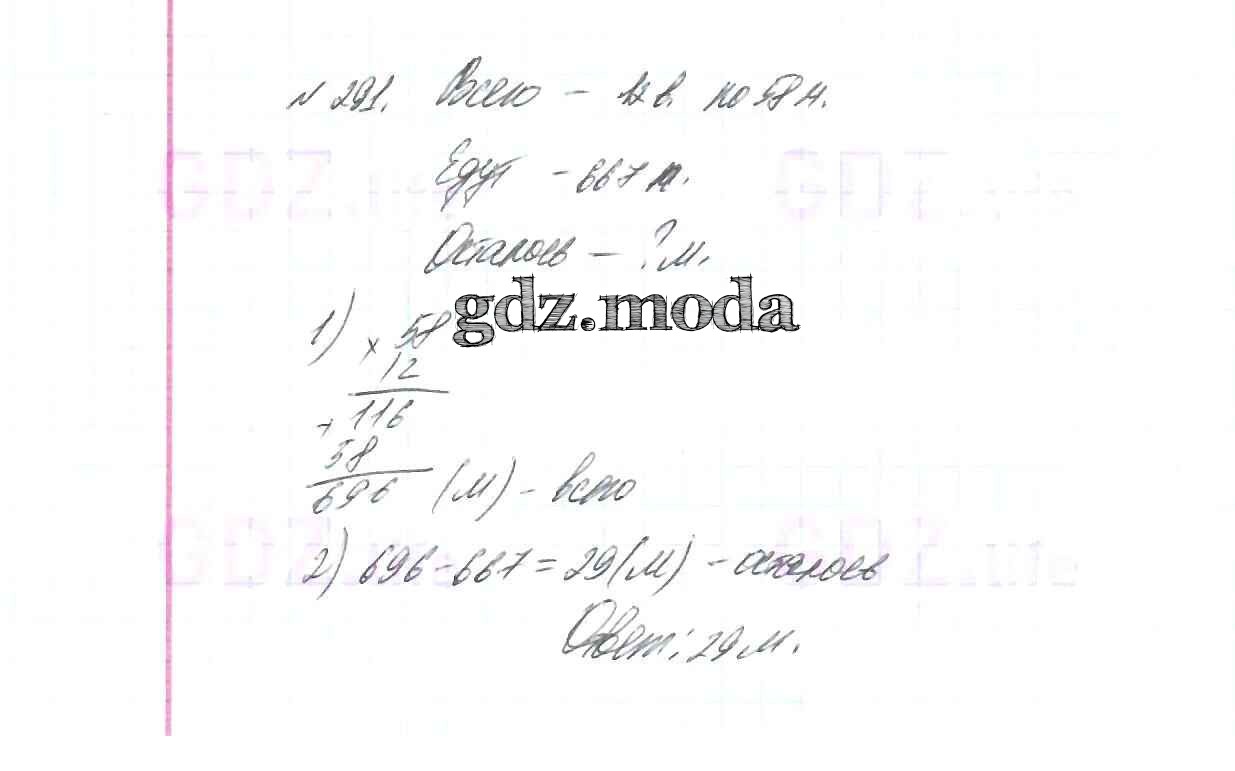 № 291. Всего – 12 в. по 58 м.
Едут – 667 п.
Осталось – ? м.
gdz.moda
1) × 58
12
+ 116
58
696 (м) – всего
2) 696 – 667 = 29 (м) – осталось
Ответ: 29 м.